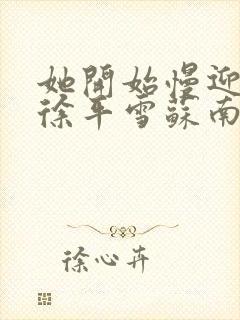 她開始慢迎
徐平雪蘇南
徐心卉